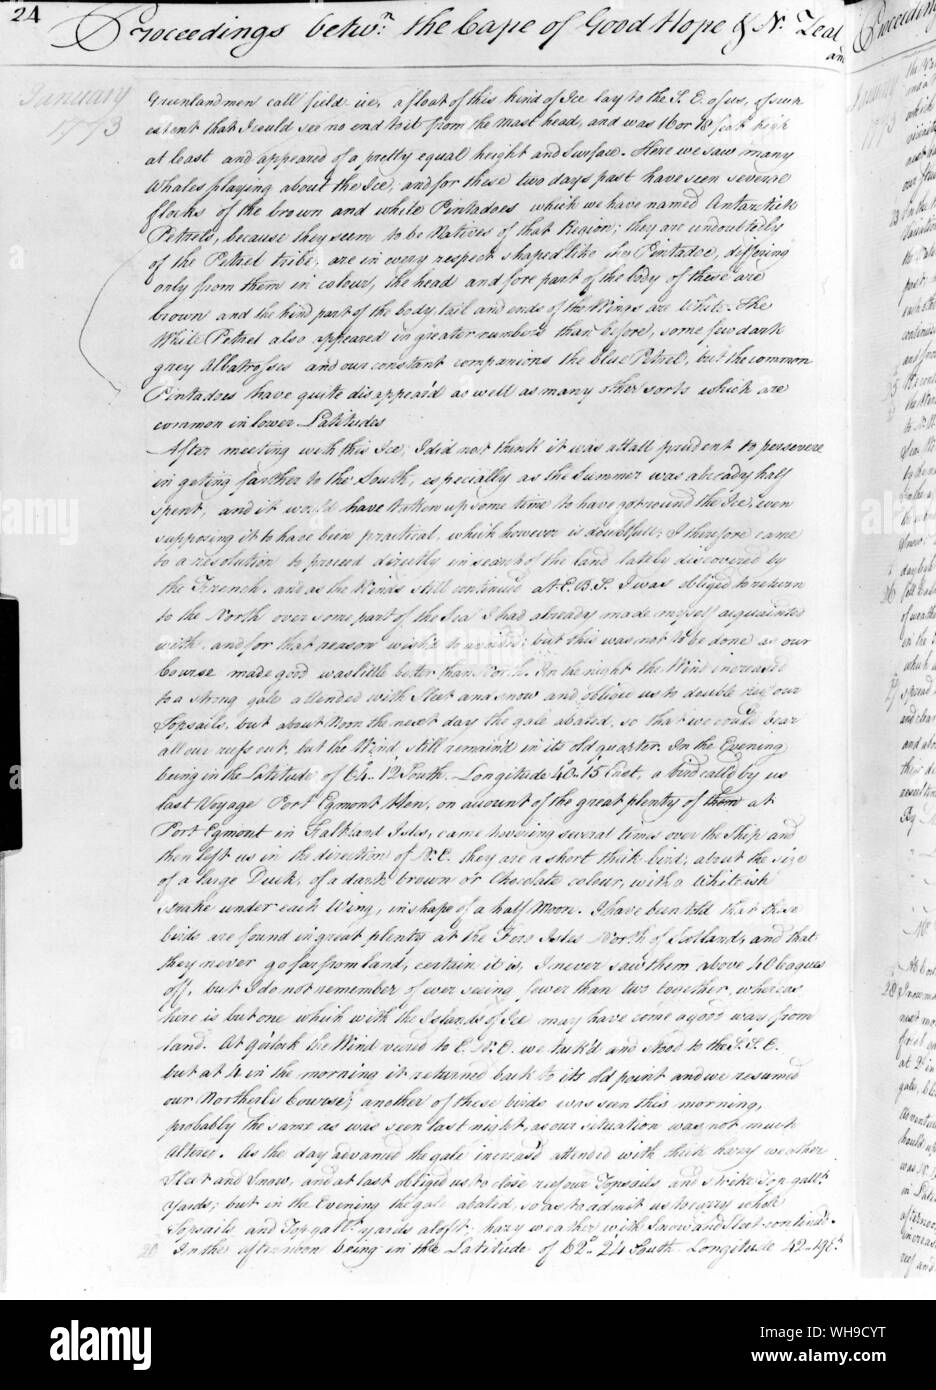 24
Proceedings betwn. the Cape of Good Hope & Nw. Zeal
and
January
1773
Greenlandmen call field ice, a float of this kind of Ice lay to the S. E. of us, of such
extent that I could see no end to it from the mast head, and was 16 or 18 feet high
at least and appeared of a pretty equal height and Surface. Here we saw many
Whales playing about the Ice, and for these two days past have seen several
flocks of the brown and white Pintadoes which we have named Antarctick
Petrels, because they seem to be Natives of that Region; they are undoubtedly
of the Petrel tribe, are in every respect shaped like the Pintadoe, differing
only from them in colour, the head and fore part of the body of these are
brown and the hind part of the body, tail and ends of the Wings are White. The
White Petrel also appeared in greater numbers than before, some few dark
grey Albatrosses and our constant companions the blue Petrel, but the common
Pintadoes have quite disappear'd as well as many other sorts which are
common in lower Latitudes
After meeting with this Ice, I did not think it was at all prudent to persevere
in geting farther to the South, especially as the Summer was already half
spent, and it would have taken up some time to have got round the Ice, even
supposing it to have been practical, which however is doubtfull; I therefore came
to a resolution to proceed directly in search of the land lately discovered by
the French. and as the Winds still continued at E.B.S. I was obliged to return
to the North over some part of the Sea I had already made myself acquainted
with, and for that reason wish'd to avoid; but this was not to be done as our
Course made good was little better than North. In the night the Wind increased
to a strong gale attended with Sleet and snow and obliged us to double reef our
Topsails, but about Noon the next day the gale abated, so that we could bear
all our reefs out, but the Wind still remain'd in its old quarter. In the Evening
being in the Latitude of 64°..12' South. Longitude 40°..15' East, a bird called by us
last Voyage Port Egmont Hen, on account of the great plenty of them at
Port Egmont in Falkland Isles, came hovering several times over the Ship and
then left us in the direction of N.E. they are a short thick bird, about the size
of a large Duck, of a dark brown or Chocolate colour, with a Whiteish
streake under each Wing, in shape of a half Moon. I have been told that these
birds are found in great plenty at the Fero Isles North of Scotland, and that
they never go far from land, certain it is, I never saw them above 40 leagues
off, but I do not remember of ever seeing fewer than two together, whereas
here is but one which with the Islands of Ice may have come a good way from
land. At 9 o'Clock the Wind veered to E. N.E. we tack'd and stood to the S.S.E.
but at 4 in the morning it returned back to its old point and we resumed
our Northerly Course; another of these birds was seen this morning,
probably the same as was seen last night, as our situation was not much
Altered. As the day advanced the gale increas'd attended with thick hazy weather
Sleet and Snow, and at last obliged us to close reef our Topsails and strike Top-gallt.
yards; but in the Evening the gale abated, so as to admit us to carry whole
Topsails and Topgallt. yards aloft; hazy weather with Snow and Sleet continued.
20 In the afternoon being in the Latitude of 62°.. 24' South. Longitude 42..19 Et.
alamy
alamy
Image ID: WH9CYT
www.alamy.com